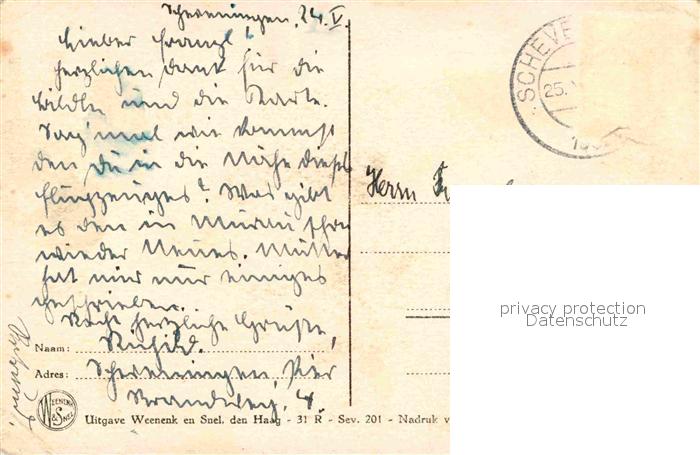 Scheveningen, 24. V.
Lieber Franzl!
Herzlichen Dank für die
Bildln und die Karte.
Sag' mal wie kommst
den du in die Nähe dieses
Flugzeuges? Was gibt
es den in Murau schon
wieder Neues. Mutter
hat mir nur einiges
geschrieben.
Recht herzliche Grüße,
Naam:
Adres: Scheveningen, Pier
4.
WEENENK & SNEL
Uitgave Weenenk en Snel, den Haag - 31 R - Sev. 201 - Nadruk v
SCHEVE
25.
Herrn
privacy protection
Datenschutz